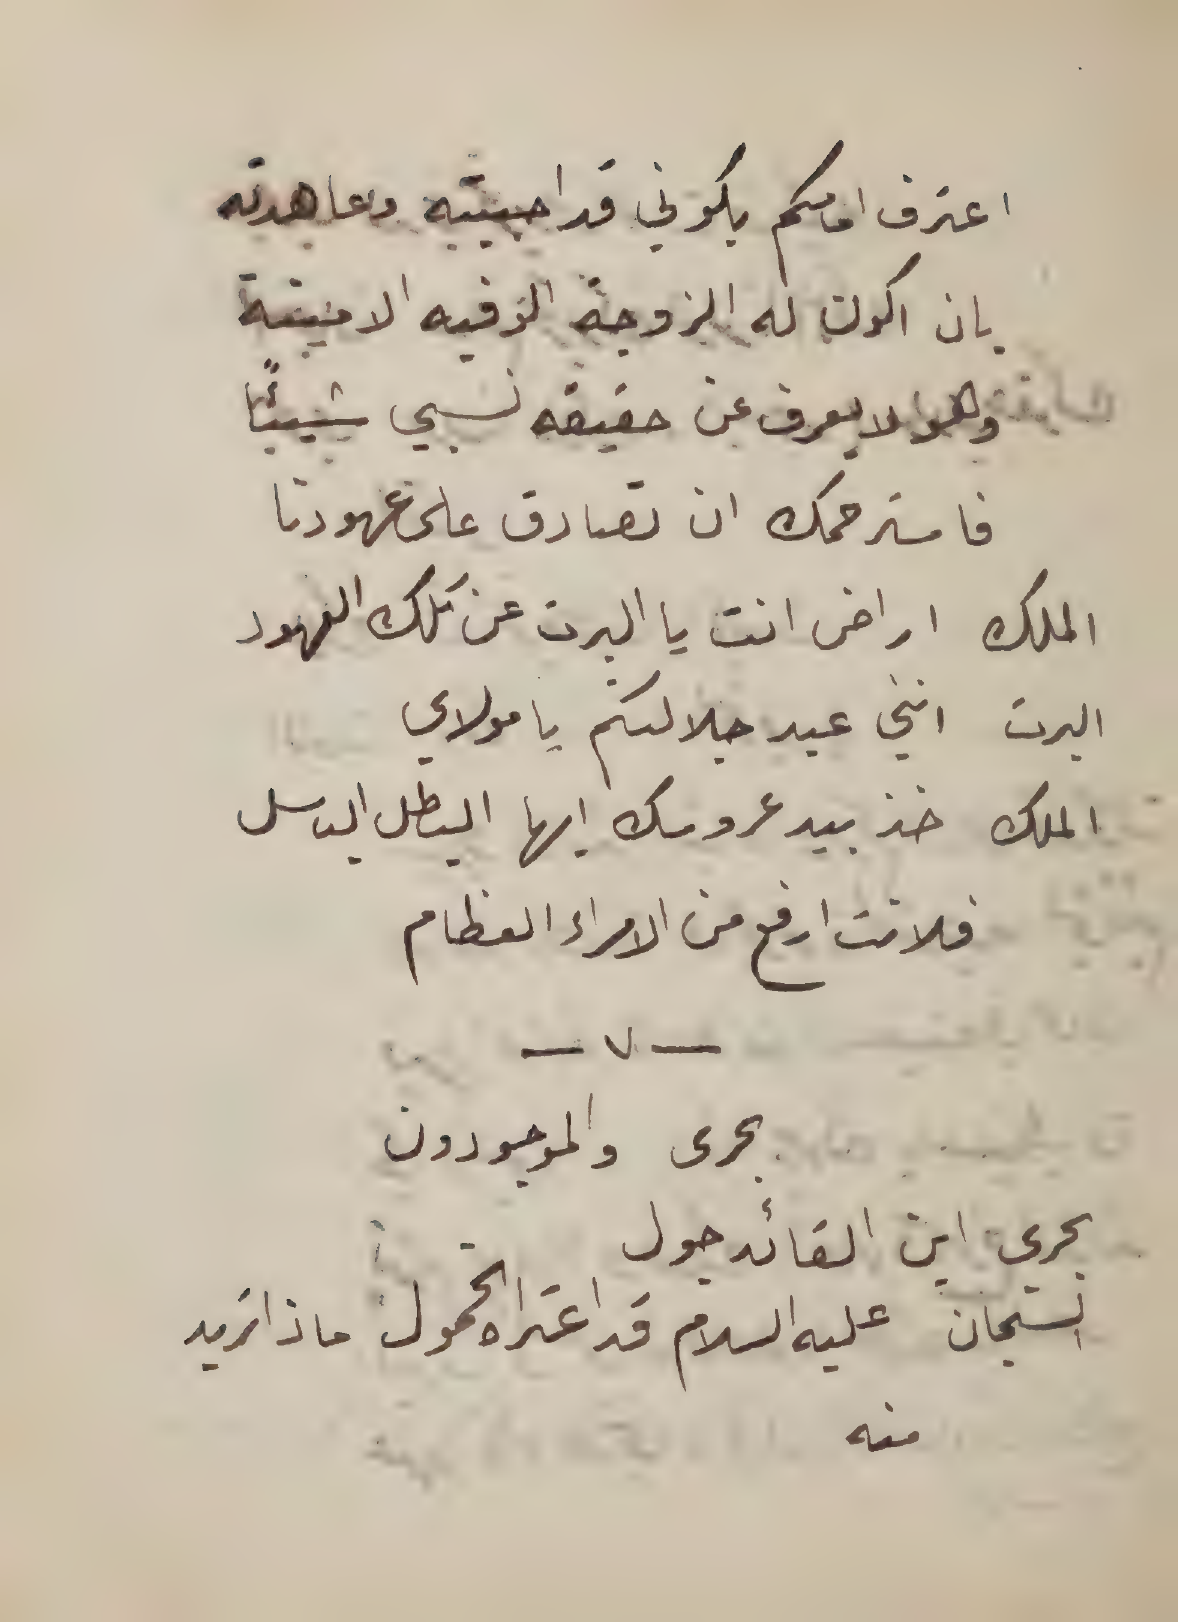 اعترف امامكم بكوني قد احببته وعاهدته
بان اكون له الزوجة الوفيه الامينة
وهو لا يعرف عن حقيقه نسبي شيئًا
فاسترحمك ان تصادق على عهودنا
الملك اراض انت يا البرت عن تلك العهود
البرت انني عبد جلالتكم يا مولاي
الملك خذ بيد عروسك ايها البطل الباسل
فلانت ارفع من الامراء العظام
— ٧ —
بحرى والموجودون
بحرى اين القائد جول
السجان عليه السلام قد اعتراه الخمول ماذا تريد
منه